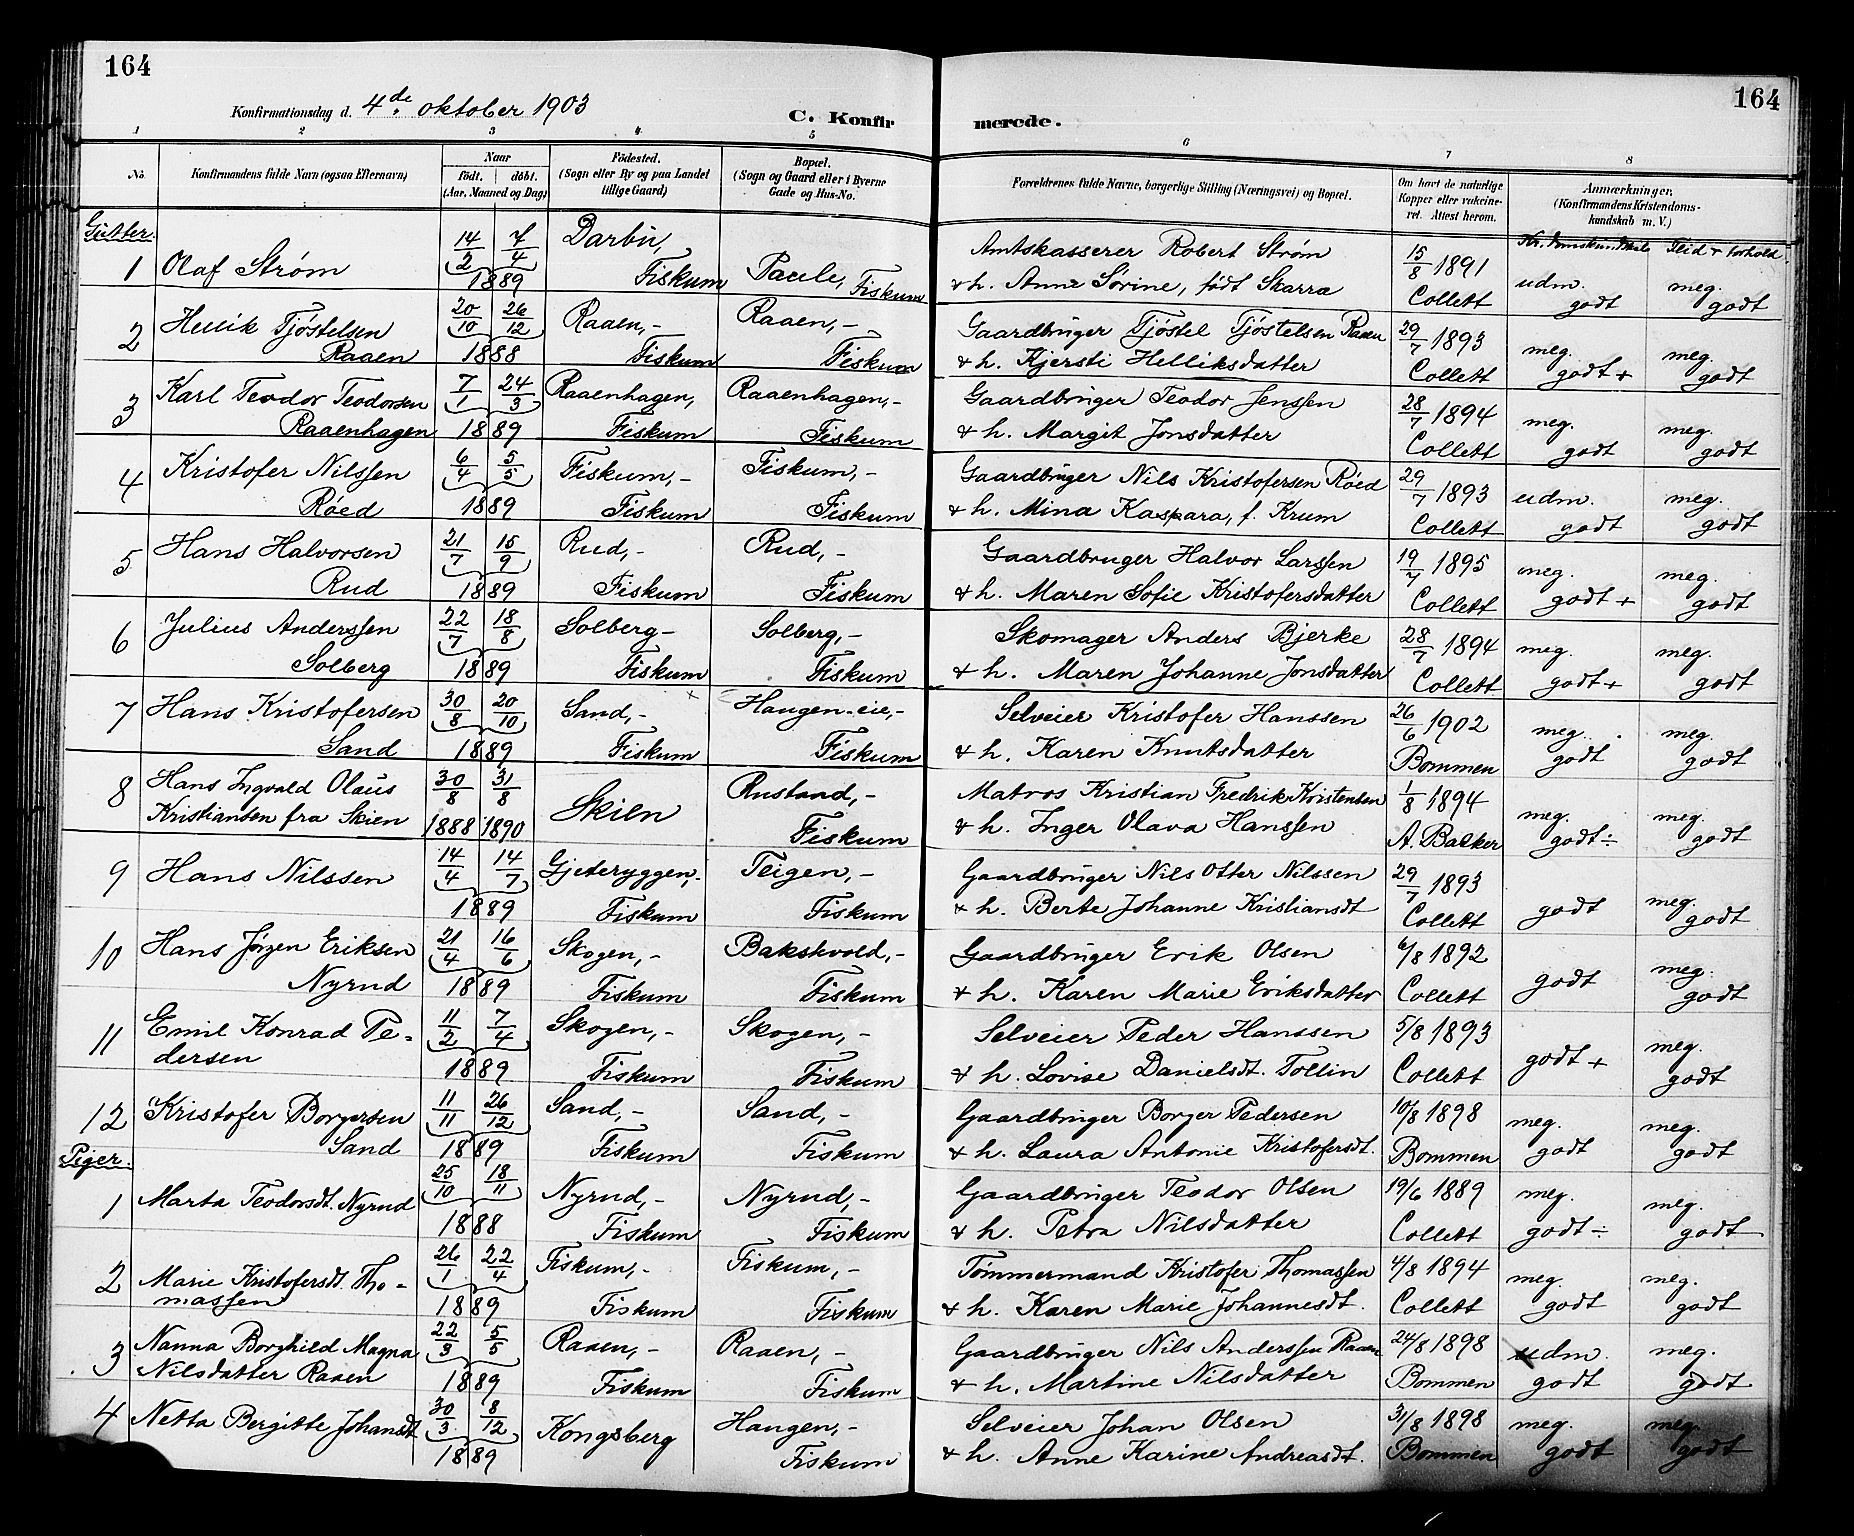 164
164
Konfirmationsdag d. 4de oktober 1903
C. Konfir
merede.
1 2 3 4 5 6 7 8
No.
Konfirmandens fulde Navn (ogsaa Efternavn)
Naar
födt. döbt.
(Aar, Maaned og Dag)
Födested.
(Sogn eller By og paa Landet
tillige Gaard)
Bopæl.
(Sogn og Gaard eller i Byerne
Gade og Hus-No.
Forældrenes fulde Navne, borgerlige Stilling (Næringsvei) og Bopæl.
Om havt de naturlige
Kopper eller vakcine-
ret. Attest herom.
Anmærkninger.
(Konfirmandens Kristendoms-
kundskab m. V.)
Kr.domskundskab Flid + forhold.
Gutter.
1 Olaf Strøm 14/2 7/4 Darbu, Amtskasserer Robert Strøm 15/8 1891 udm. meg.
1889 Fiskum Paule, Fiskum + h. Anne Sørine, født Skarra Collett godt godt
2 Hellik Tjøstelsen 20/10 26/12 Raaen,- Raaen,- Gaardbruger Tjøstel Tjøstelsen Raaen 29/7 1893 meg. meg.
Raaen 1888 Fiskum Fiskum + h. Kjersti Helliksdatter Collett godt + godt
3 Karl Teodor Teodorsen 7/1 24/3 Raaenhagen, Raaenhagen,- Gaardbruger Teodor Jenssen 28/7 1894 meg. meg.
Raaenhagen 1889 Fiskum Fiskum + h. Margit Jonsdatter Collett godt godt
4 Kristofer Nilssen 6/4 5/5 Fiskum,- Fiskum,- Gaardbruger Nils Kristofersen Røed 29/7 1893 udm. meg.
Røed 1889 Fiskum Fiskum + h. Mina Kaspara, f. Krum Collett godt godt
5 Hans Halvorsen 21/7 15/9 Rud,- Rud,- Gaardbruger Halvor Larssen 19/7 1895 meg. meg.
Rud 1889 Fiskum Fiskum + h. Maren Sofie Kristofersdatter Collett godt + godt
6 Julius Anderssen 22/7 18/8 Solberg- Solberg,- Skomager Anders Bjerke 28/7 1894 meg. meg.
Solberg 1889 Fiskum Fiskum + h. Maren Johanne Jonsdatter Collett godt + godt
7 Hans Kristofersen 30/8 20/10 Sand,- Haugen-eie,- Selveier Kristofer Hanssen 26/6 1902 meg. meg.
Sand 1889 Fiskum Fiskum + h. Karen Knutsdatter Bommen godt godt
8 Hans Ingvald Olaus 30/8 31/8 Skien Rustand,- Matros Kristian Fredrik Kristensen 1/8 1894 meg. meg.
Kristiansen fra Skien 1888 1890 Fiskum + h. Inger Olava Hanssen A. Bakker godt ÷ godt
9 Hans Nilssen 14/4 14/7 Gjeteryggen,- Teigen,- Gaardbruger Nils Otter Nilssen 29/7 1893 godt meg.
1889 Fiskum Fiskum + h. Berte Johanne Kristiansdt Collett godt
10 Hans Jørgen Eriksen 21/4 16/6 Skogen,- Bakskvold,- Gaardbruger Erik Olsen 6/8 1892 godt meg.
Nyrud 1889 Fiskum Fiskum + h. Karen Marie Eriksdatter Collett godt
11 Emil Konrad Pe- 11/2 7/4 Skogen,- Skogen,- Selveier Peder Hanssen 5/8 1893 godt + meg.
dersen 1889 Fiskum Fiskum + h. Lovise Danielsdt. Tollin Collett godt
12 Kristofer Borgersen 11/11 26/12 Sand,- Sand,- Gaardbruger Borger Pedersen 10/8 1898 meg. meg.
Sand 1889 Fiskum Fiskum + h. Laura Antonie Kristofersdt. Bommen godt godt
Piger.
1 Marta Teodorsdt. Nyrud 25/10 18/11 Nyrud,- Nyrud,- Gaardbruger Teodor Olsen 19/6 1889 meg. meg.
1888 Fiskum Fiskum + h. Petra Nilsdatter Collett godt ÷ godt
2 Marie Kristofersdt. Tho- 26/1 22/4 Fiskum,- Fiskum,- Tømmermand Kristofer Thomassen 4/8 1894 meg. meg.
massen 1889 Fiskum Fiskum + h. Karen Marie Johannesdt. Collett godt godt
3 Nanna Borghild Magna 22/3 5/5 Raaen,- Raaen,- Gaardbruger Nils Anderssen Raaen 24/8 1898 udm. meg.
Nilsdatter Raaen 1889 Fiskum Fiskum + h. Martine Nilsdatter Bommen godt godt
4 Netta Bergitte Johansdt 30/3 8/12 Kongsberg Haugen,- Selveier Johan Olsen 31/8 1898 meg. meg.
1889 Fiskum + h. Anne Karine Andreasdt. Bommen godt godt